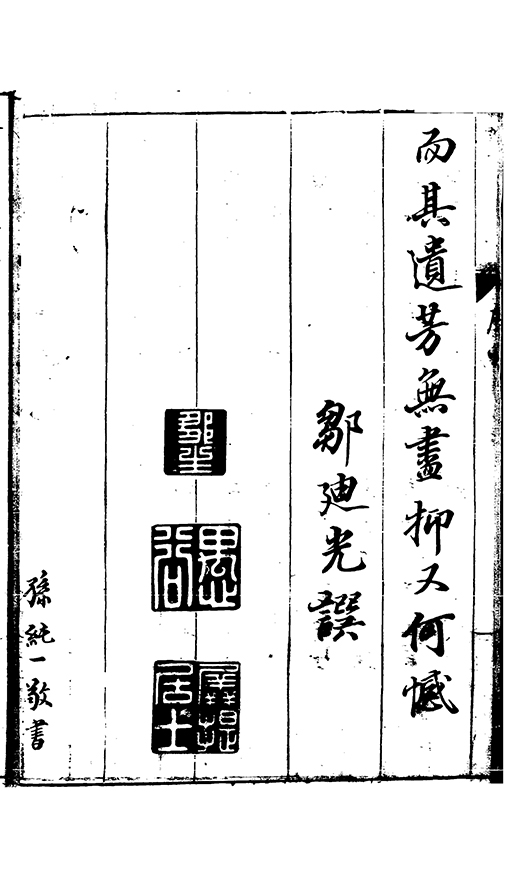 而其遺芳無盡抑又何憾
鄒迪光譔
愚谷
居士
孫純一敬書